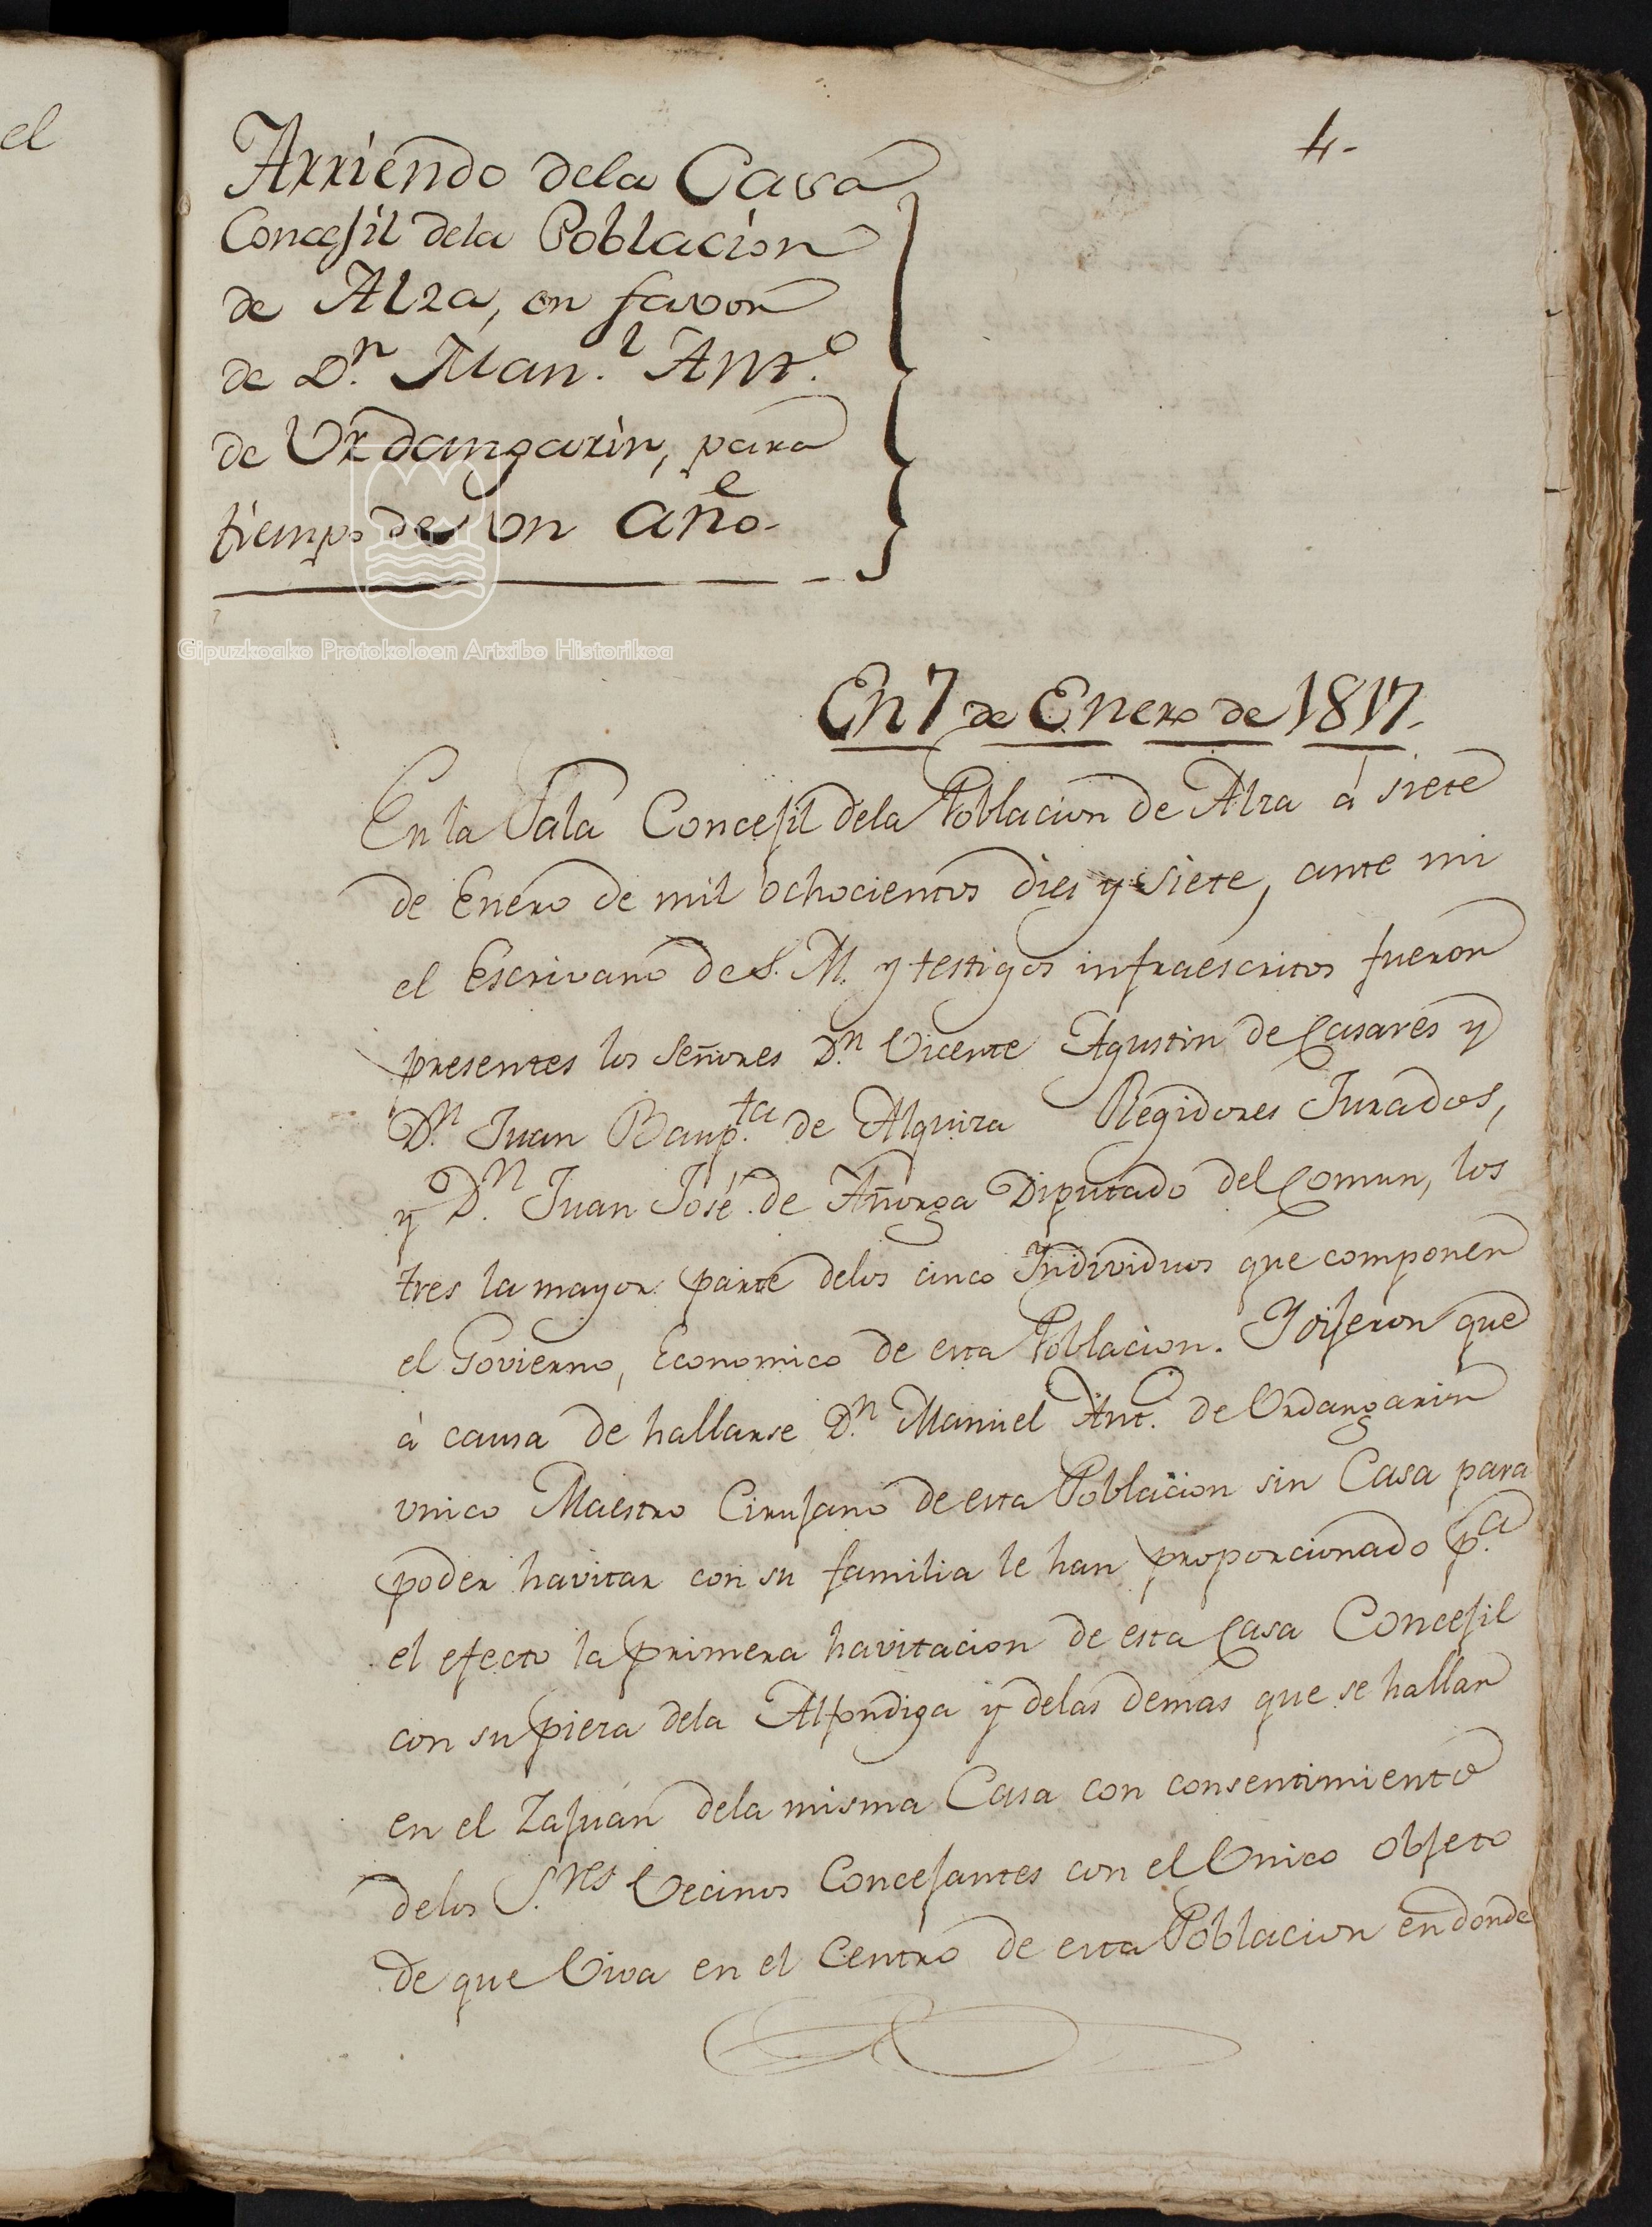 el
4-
Arriendo dela Casa
Concejil dela Poblacion
de Alza, en favor
de Dn. Man.l Ant.o
de Urdangarin, para
tiempo de un año-
Gipuzkoako Protokoloen Artxibo Historikoa
En 7 de Enero de 1817.
En la Sala Concejil dela Poblacion de Alza á siete
de Enero de mil ochocientos dies y siete, ante mi
el Escrivano de S. M. y testigos infraescritos fueron
presentes los Señores Dn. Vicente Agustin de Casares y
Dn. Juan Baup.ta de Alquiza Regidores Jurados,
y Dn. Juan José de Añorga Diputado del Comun, los
tres la mayor parte delos cinco Yndividuos que componen
el Govierno, Economico de esta Poblacion. Y dijeron que
á causa de hallarse Dn. Manuel Ant.o de Urdangarin
unico Maestro Cirujano de esta Poblacion sin Casa para
poder havitar con su familia le han proporcionado p.a
el efecto la primera havitacion de esta Casa Concejil
con su pieza dela Alfondiga y delas demas que se hallan
en el Zajuan dela misma Casa con consentimiento
delos S.res Vecinos Concejantes con el Unico objeto
de que Viva en el Centro de esta Poblacion en donde